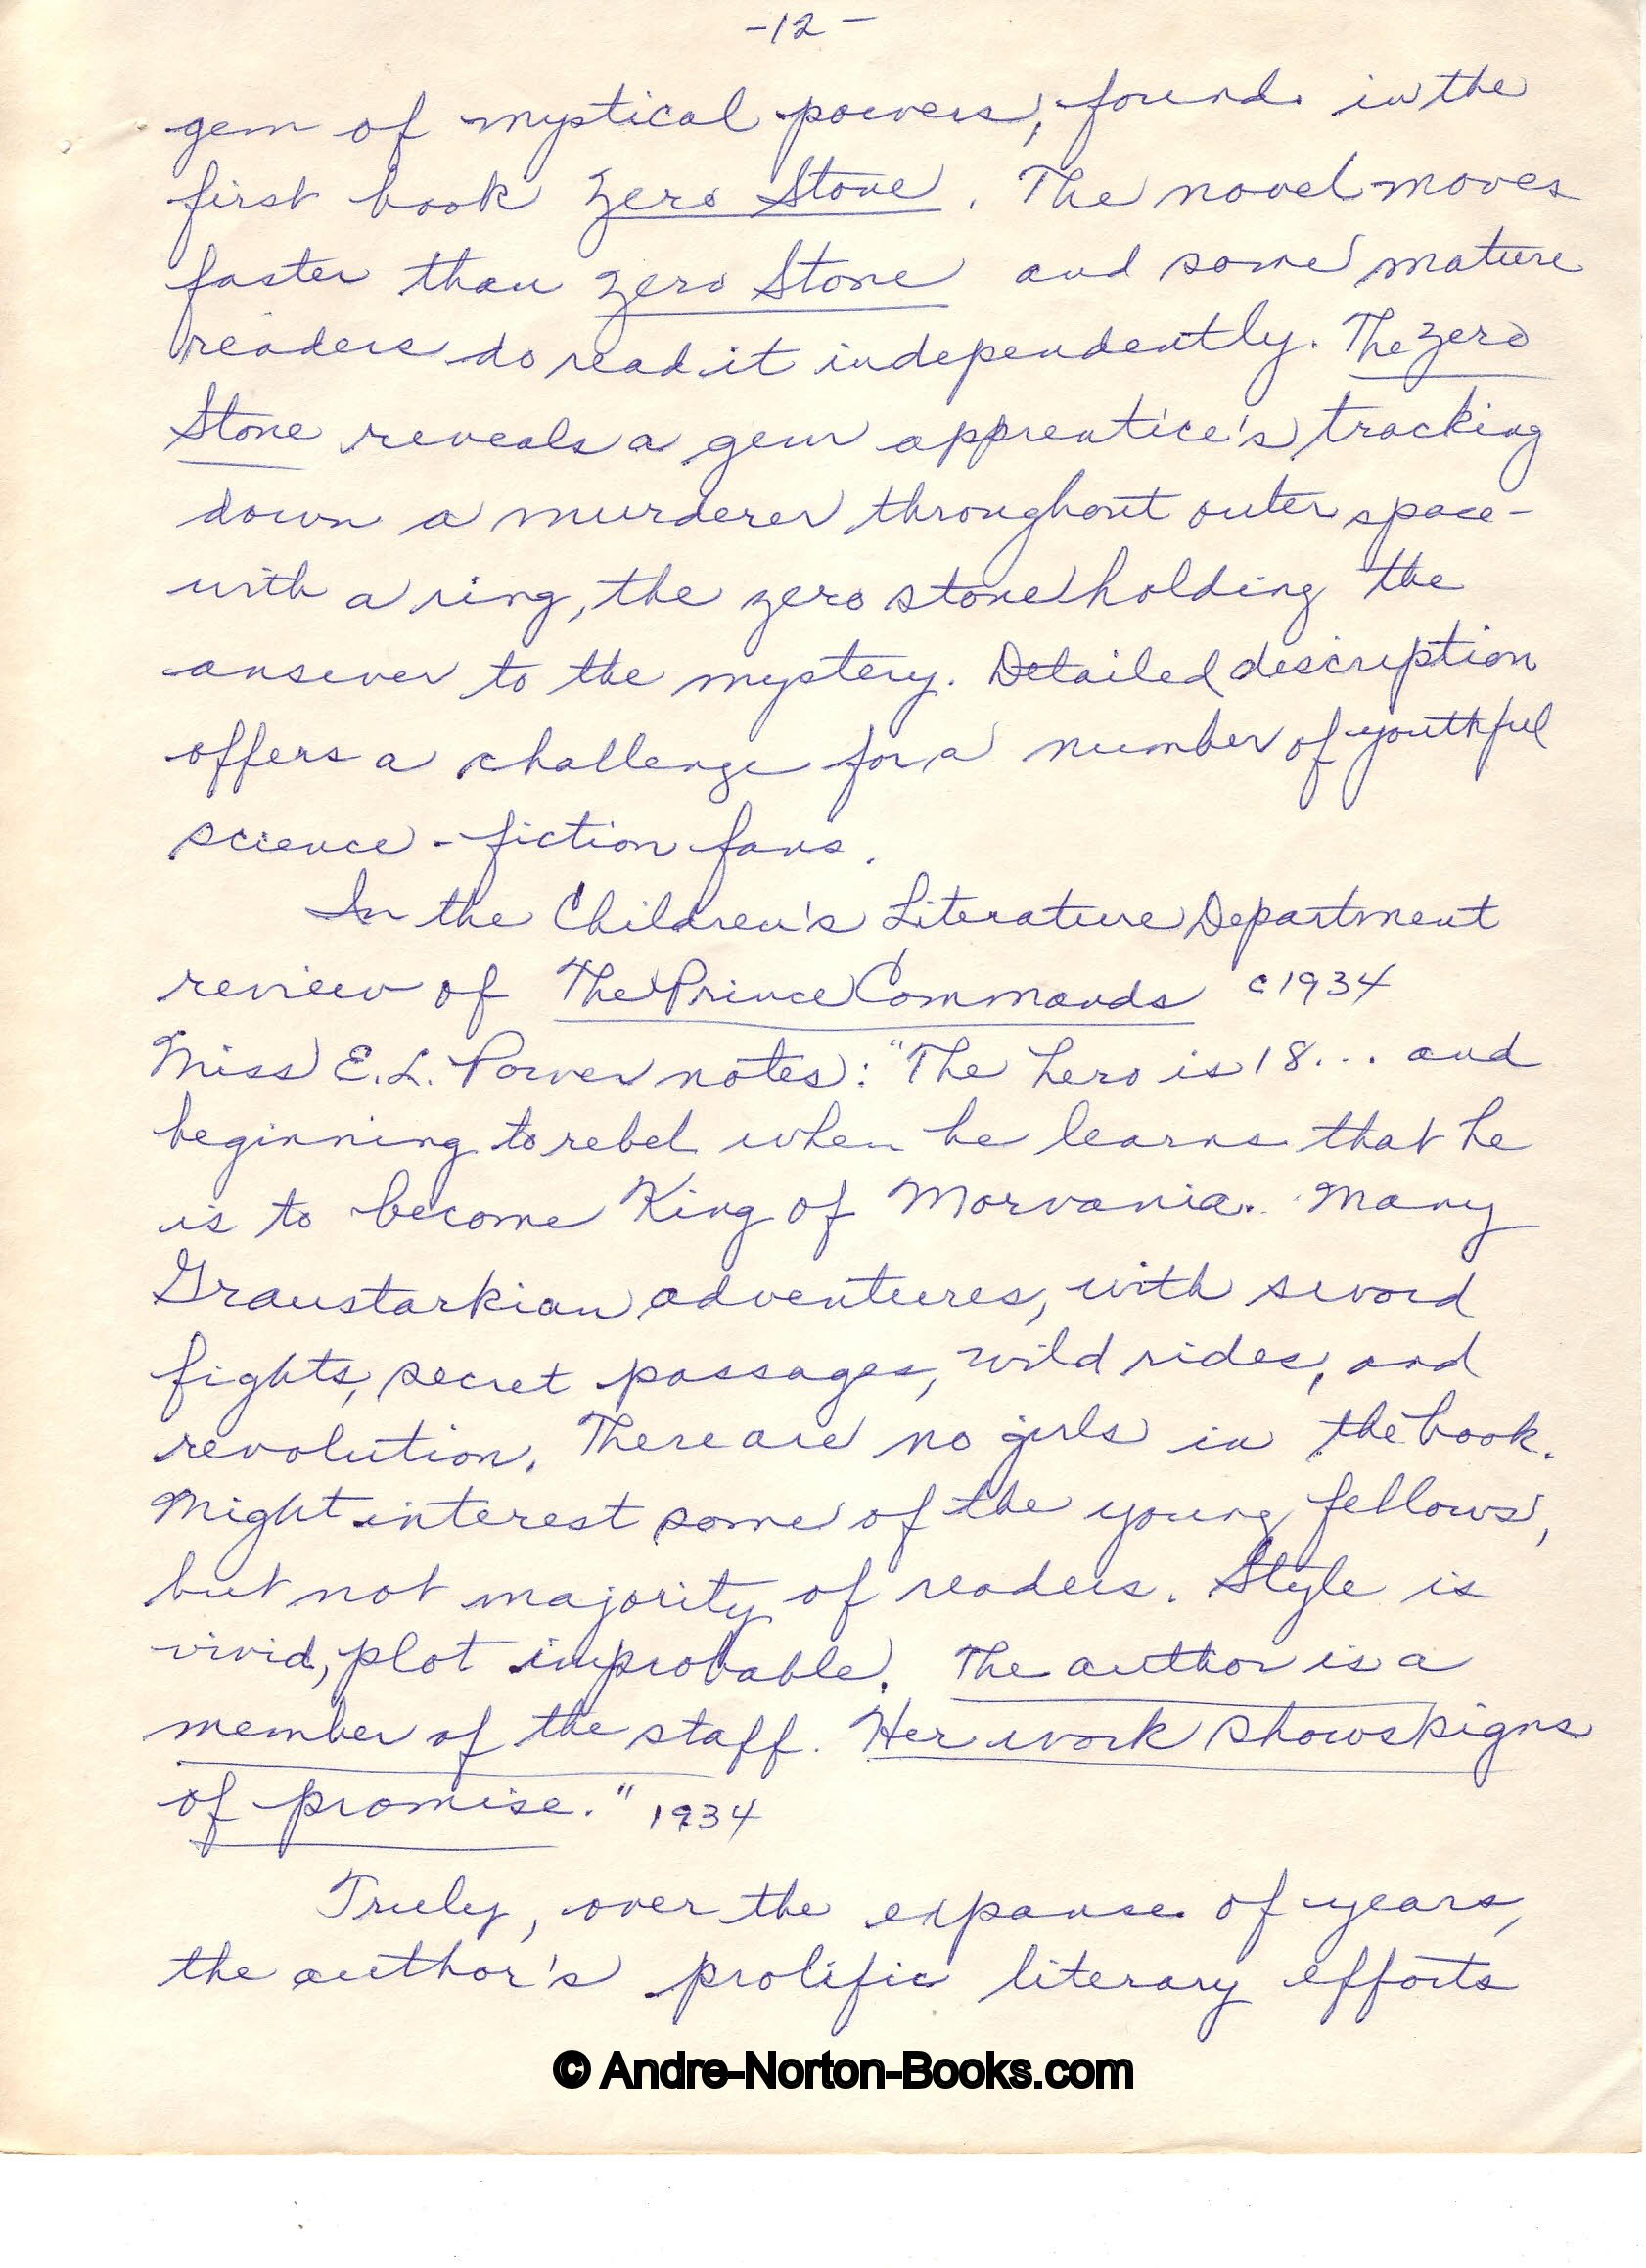 -12-
gem of mystical powers, found in the
first book Zero Stone. The novel moves
faster than Zero Stone and some mature
readers do read it independently. The Zero
Stone reveals a gem apprentice's tracking
down a murderer throughout outer space-
with a ring, the zero stone holding the
answer to the mystery. Detailed description
offers a challenge for a number of youthful
science-fiction fans.
In the Children's Literature Department
review of The Prince Commands c1934
Miss E.L. Power notes: "The hero is 18... and
beginning to rebel when he learns that he
is to become King of Morvania. Many
Graustarkian adventures, with sword
fights, secret passages, wild rides, and
revolution. There are no girls in the book.
Might interest some of the young fellows,
but not majority of readers. Style is
vivid, plot improbable. The author is a
member of the staff. Her work shows signs
of promise." 1934
Truly, over the expanse of years,
the author's prolific literary efforts
© Andre-Norton-Books.com